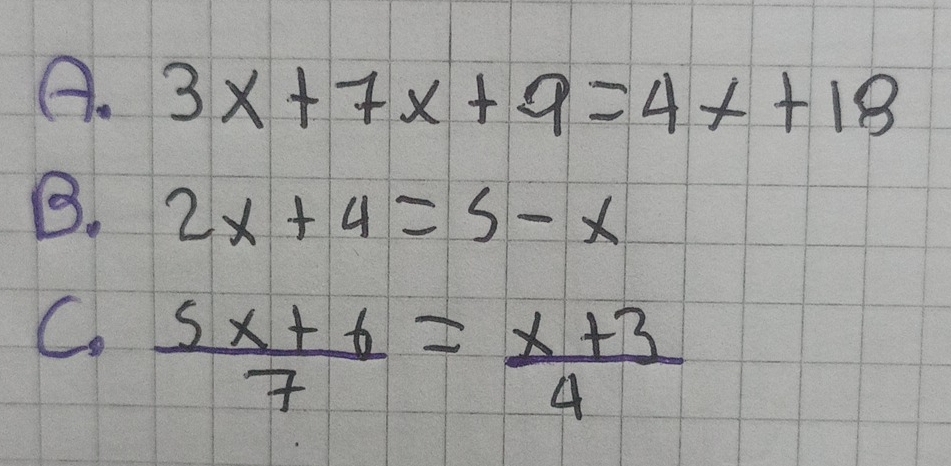 A. 3x+7x+9=4x+18
B. 2x+4=5-x
C. 5x+6/7 = x+3/4